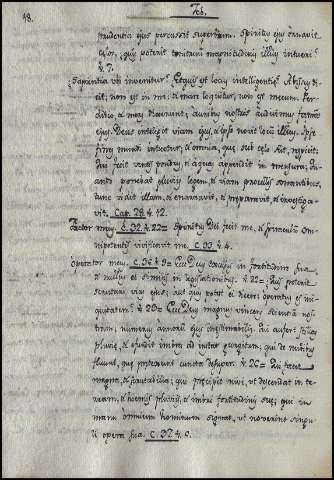 18.
Job.
prudentia ejus percussit superbum. Spiritus ejus ornavit
celos, quis poterit tonitruum magnitudinis illius intueri?
℣. 7.
Sapientia ubi invenitur? Et quis est locus intelligentiæ? Abissus di-
cit; non est in me: & mare loquitur, non est mecum. Per-
ditio, & mors dixerunt, auribus nostris audivimus famam
ejus. Deus intelligit viam ejus, & ipse novit locum illius. Ipse
fines mundi intuetur, & omnia, quæ sub celo sunt, respicit.
Qui fecit ventis pondus, & aquas appendit in mensura. Qu-
ando ponebat pluviis legem, & viam procellis sonantibus,
tunc vidit illam, & enarravit, & præparavit, & investiga-
vit. Cap. 28. ℣. 12.
Factor meus. c. 32 ℣. 22= Spiritus Dei fecit me, & spiraculum Om-
nipotentis vivificavit me. c. 33. ℣. 4.
Operator meus. c. 36 ℣. 3= Ecce Deus excelsus in fortitudine sua,
& nullus ei similis in legislatoribus. ℣. 22= Quis poterit
scrutari vias ejus; aut quis potest ei dicere operatus es ini-
quitatem? ℣. 23= Ecce Deus magnus vincens scientiam nos-
tram; numerus annorum ejus inestimabilis. Qui aufert stillas
pluviæ, & effundit imbres ad instar gurgitum; qui de nubibus
fluunt, quæ prætexunt cuncta desuper. ℣. 26= Qui facit
magna, & inscrutabilia; qui præcipit nivi, ut descendat in te-
rram, & hiemis pluviis, & imbri fortitudinis suæ; qui in
manu omnium hominum signat, ut noverint singu-
li opera sua. c. 37 ℣. 5.